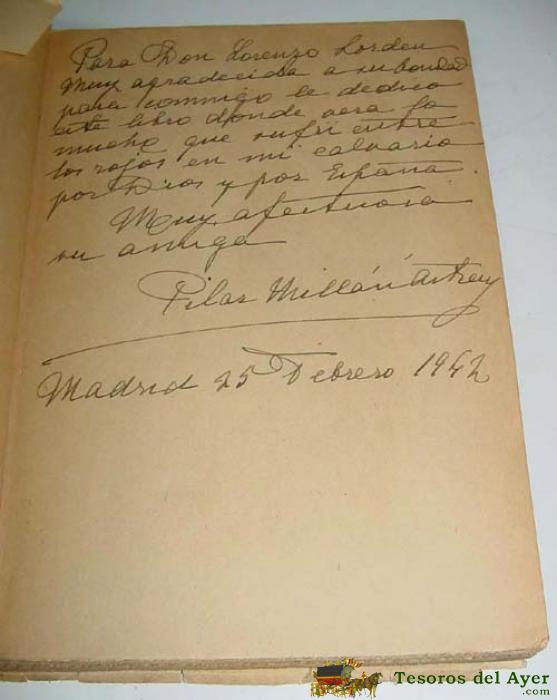 Para Don Lorenzo Lorden
Muy agradecida a su bondad
para conmigo le dedico
este libro donde vera lo
mucho que sufri entre
los rojos en mi calvario
por Dios y por España.
Muy afectuosa
su amiga
Pilar Millán Astray
Madrid 25 Febrero 1942
Tesoros del Ayer
.com